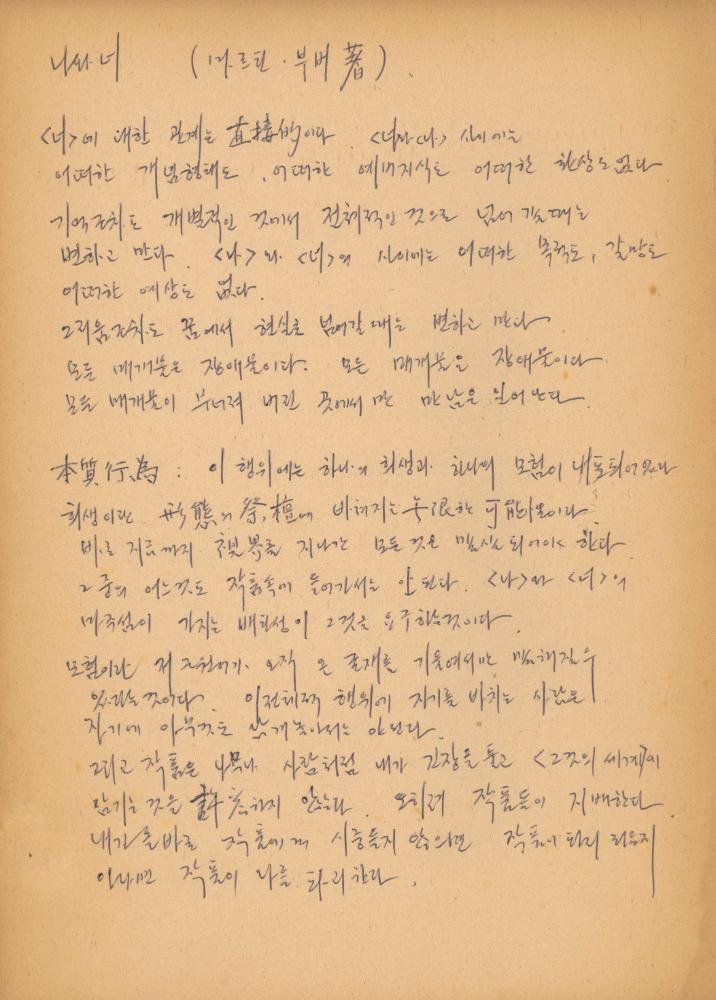 나와 너 (마르틴·부버 著).
<너>에 대한 관계는 直接的이다. <너>와 <나> 사이에는
어떠한 개념형태도, 어떠한 예비지식도 어떠한 환상도 없다
기억조차도 개별적인 것에서 전체적인 것으로 넘어 갈때는
변하고 만다. <나>와 <너>의 사이에는 어떠한 목적도, 갈망도
어떠한 예상도 없다.
그리움조차도 꿈에서 현실로 넘어갈 때는 변하고 만다.
모든 매개물은 장애물이다. 모든 매개물은 장애물이다.
모든 매개물이 무너져 버린 곳에서만 만남은 일어난다.
本質行為 : 이 행위에는 하나의 희생과 하나의 모험이 내포되어있다
희생이란 形態의 祭壇에 바쳐지는 무限한 可能性이다.
바로 지금까지 視界를 지나간 모든 것은 말살되어야 한다.
그 중의 어느것도 작품속에 들어가서는 안 된다. <나>와 <너>의
가지는 배타성이 그것을 요구하는것이다.
모험이란 저 근원어가 오직 온 존재를 기울여서만 말해질 수
있다는것이다. 이전체적 행위에 자기를 바치는 사람은
자기에 아무것도 남겨놓아서는 안된다.
그리고 작품은 나무나 사람처럼 내가 긴장을 풀고 <그것의 세계>에
잠기는 것을 許容하지 않는다. 오히려 작품들이 지배한다.
내가 올바로 작품에게 시중들지 않으면 작품이 파괴되든지
아니면 작품이 나를 파괴한다.